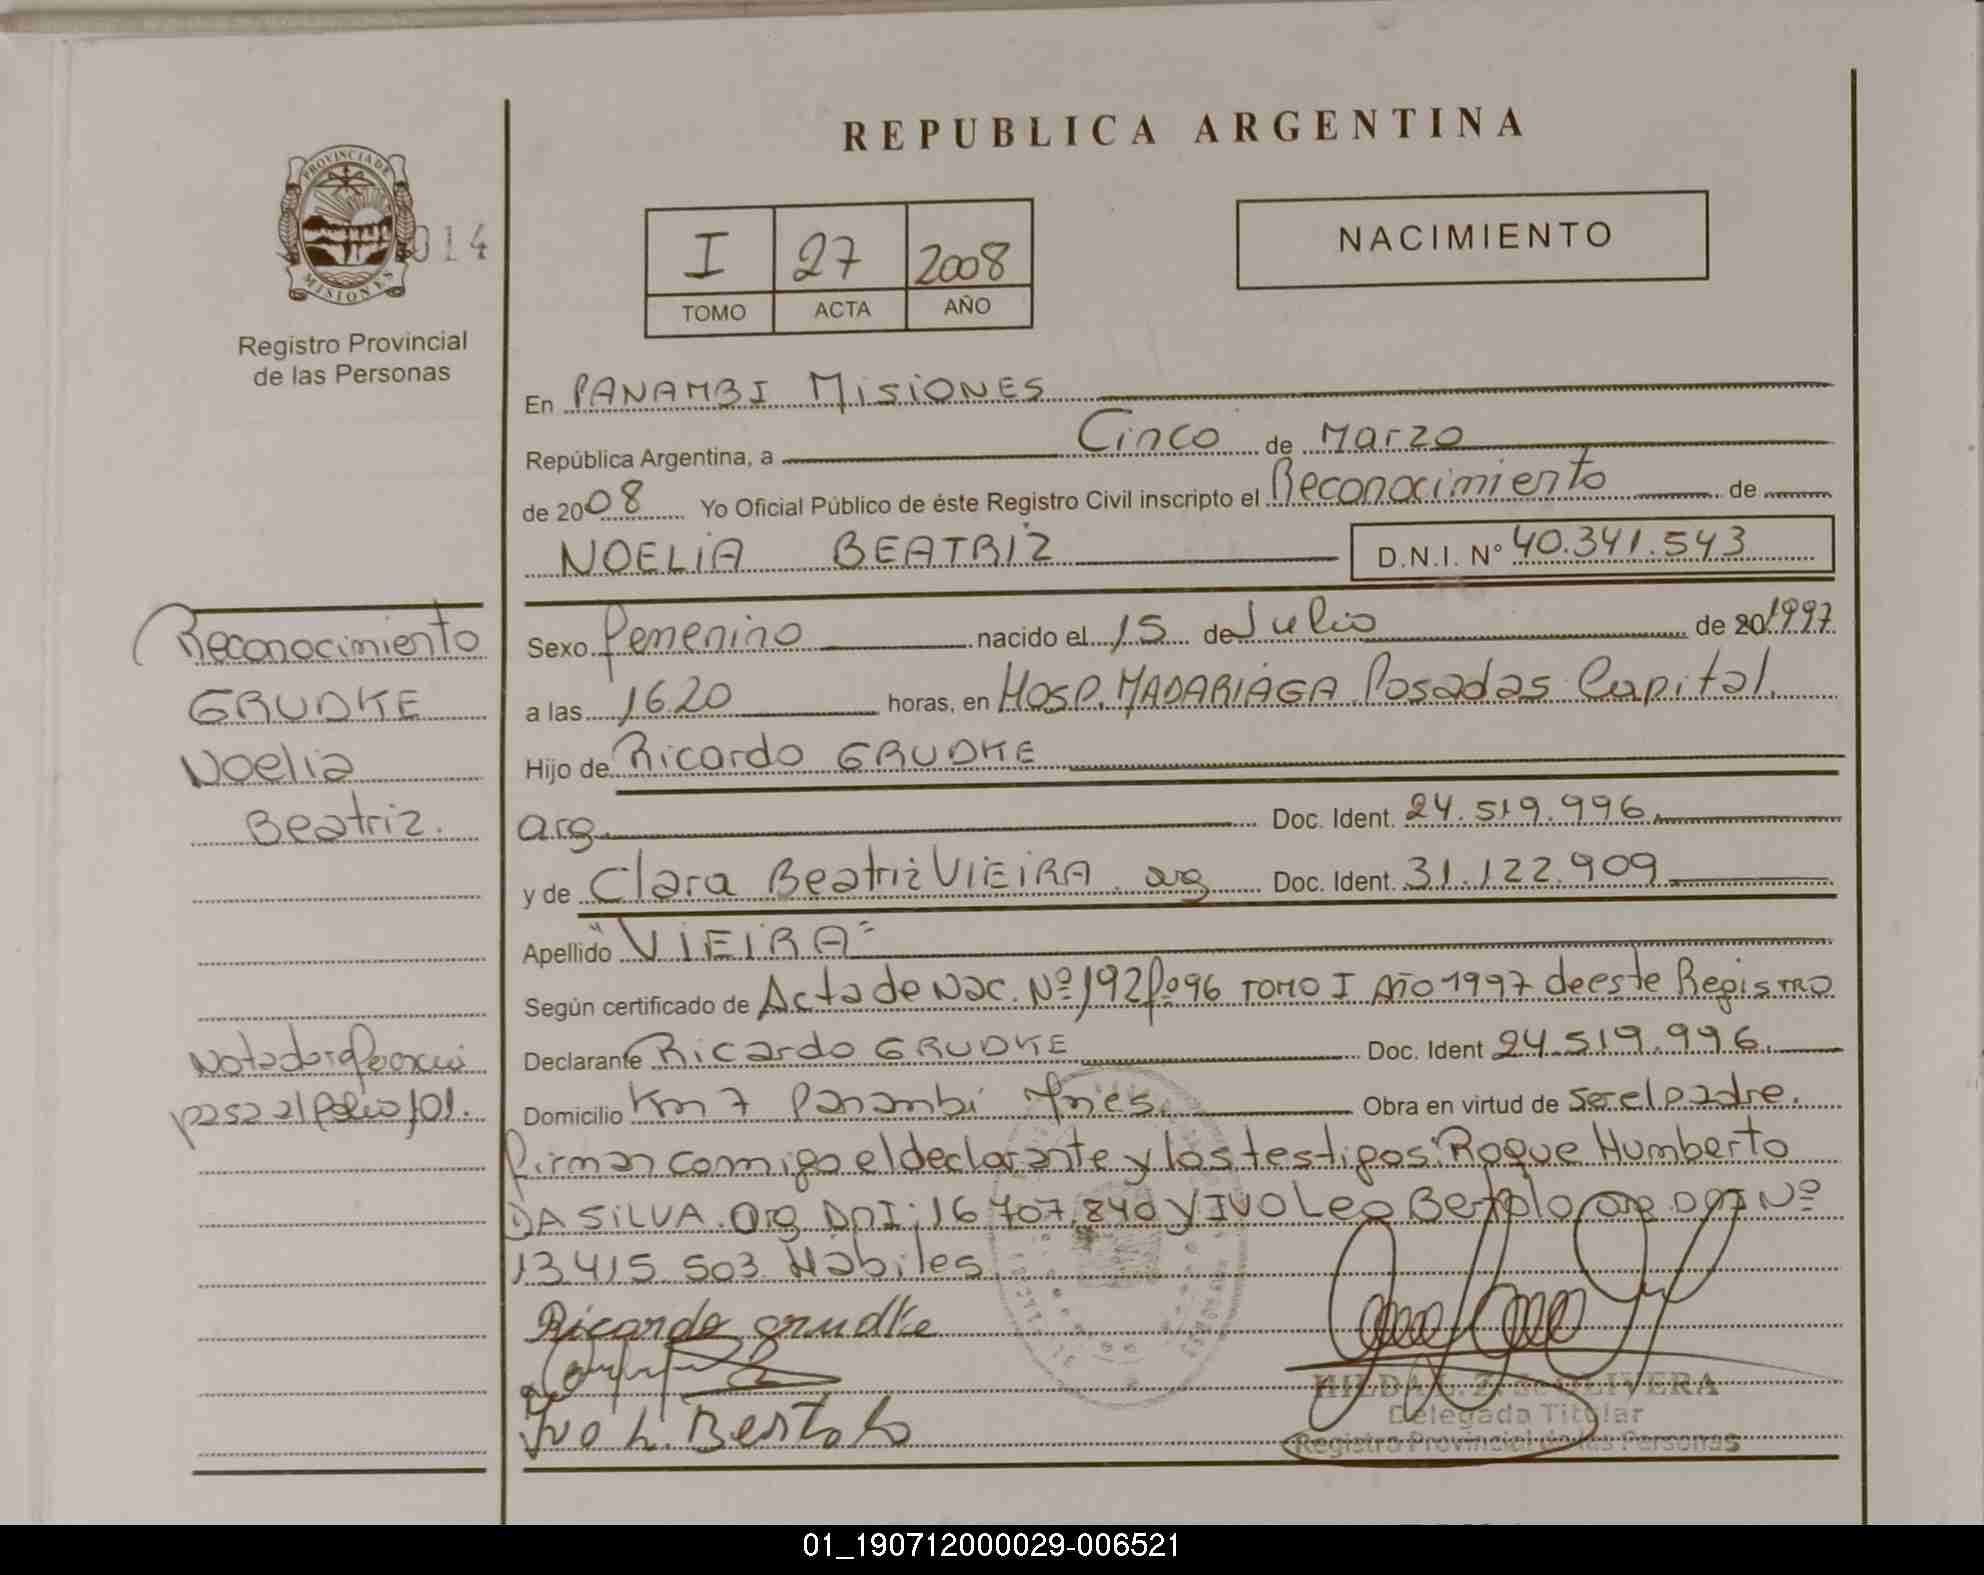 REPUBLICA ARGENTINA
PROVINCIA DE
MISIONES
014
Registro Provincial
de las Personas
I 27 2008
TOMO ACTA AÑO
NACIMIENTO
En PANAMBI MISIONES
República Argentina, a Cinco de Marzo
de 2008 Yo Oficial Público de éste Registro Civil inscripto el Reconocimiento de
NOELIA BEATRIZ D.N.I. Nº 40.341.543
Reconocimiento
GRUDKE
Noelia
Beatriz.
Nota de referencia
pasa al folio 101.
Sexo femenino nacido el 15 de Julio de 20 1997
a las 1620 horas, en HOSP. MADARIAGA Posadas Capital.
Hijo de Ricardo GRUDKE
arg. Doc. Ident. 24.519.996
y de Clara Beatriz VIEIRA arg Doc. Ident. 31.122.909
Apellido "VIEIRA"
Según certificado de Acta de Nac. Nº 192 fº 96 TOMO I AÑO 1997 de este Registro
Declarante Ricardo GRUDKE Doc. Ident 24.519.996.
Domicilio Km 7 Panambi Mnes. Obra en virtud de ser el padre.
firman conmigo el declarante y los testigos: Roque Humberto
DA SILVA. arg DNI: 16 707.840 y IVO Leo Bertolo arg. DNI Nº
13.415 503 Habiles
Ricardo grudke
Ivo L. Bertolo
OLIVERA
Delegada Titular
Registro Provincial de las Personas
01_190712000029-006521